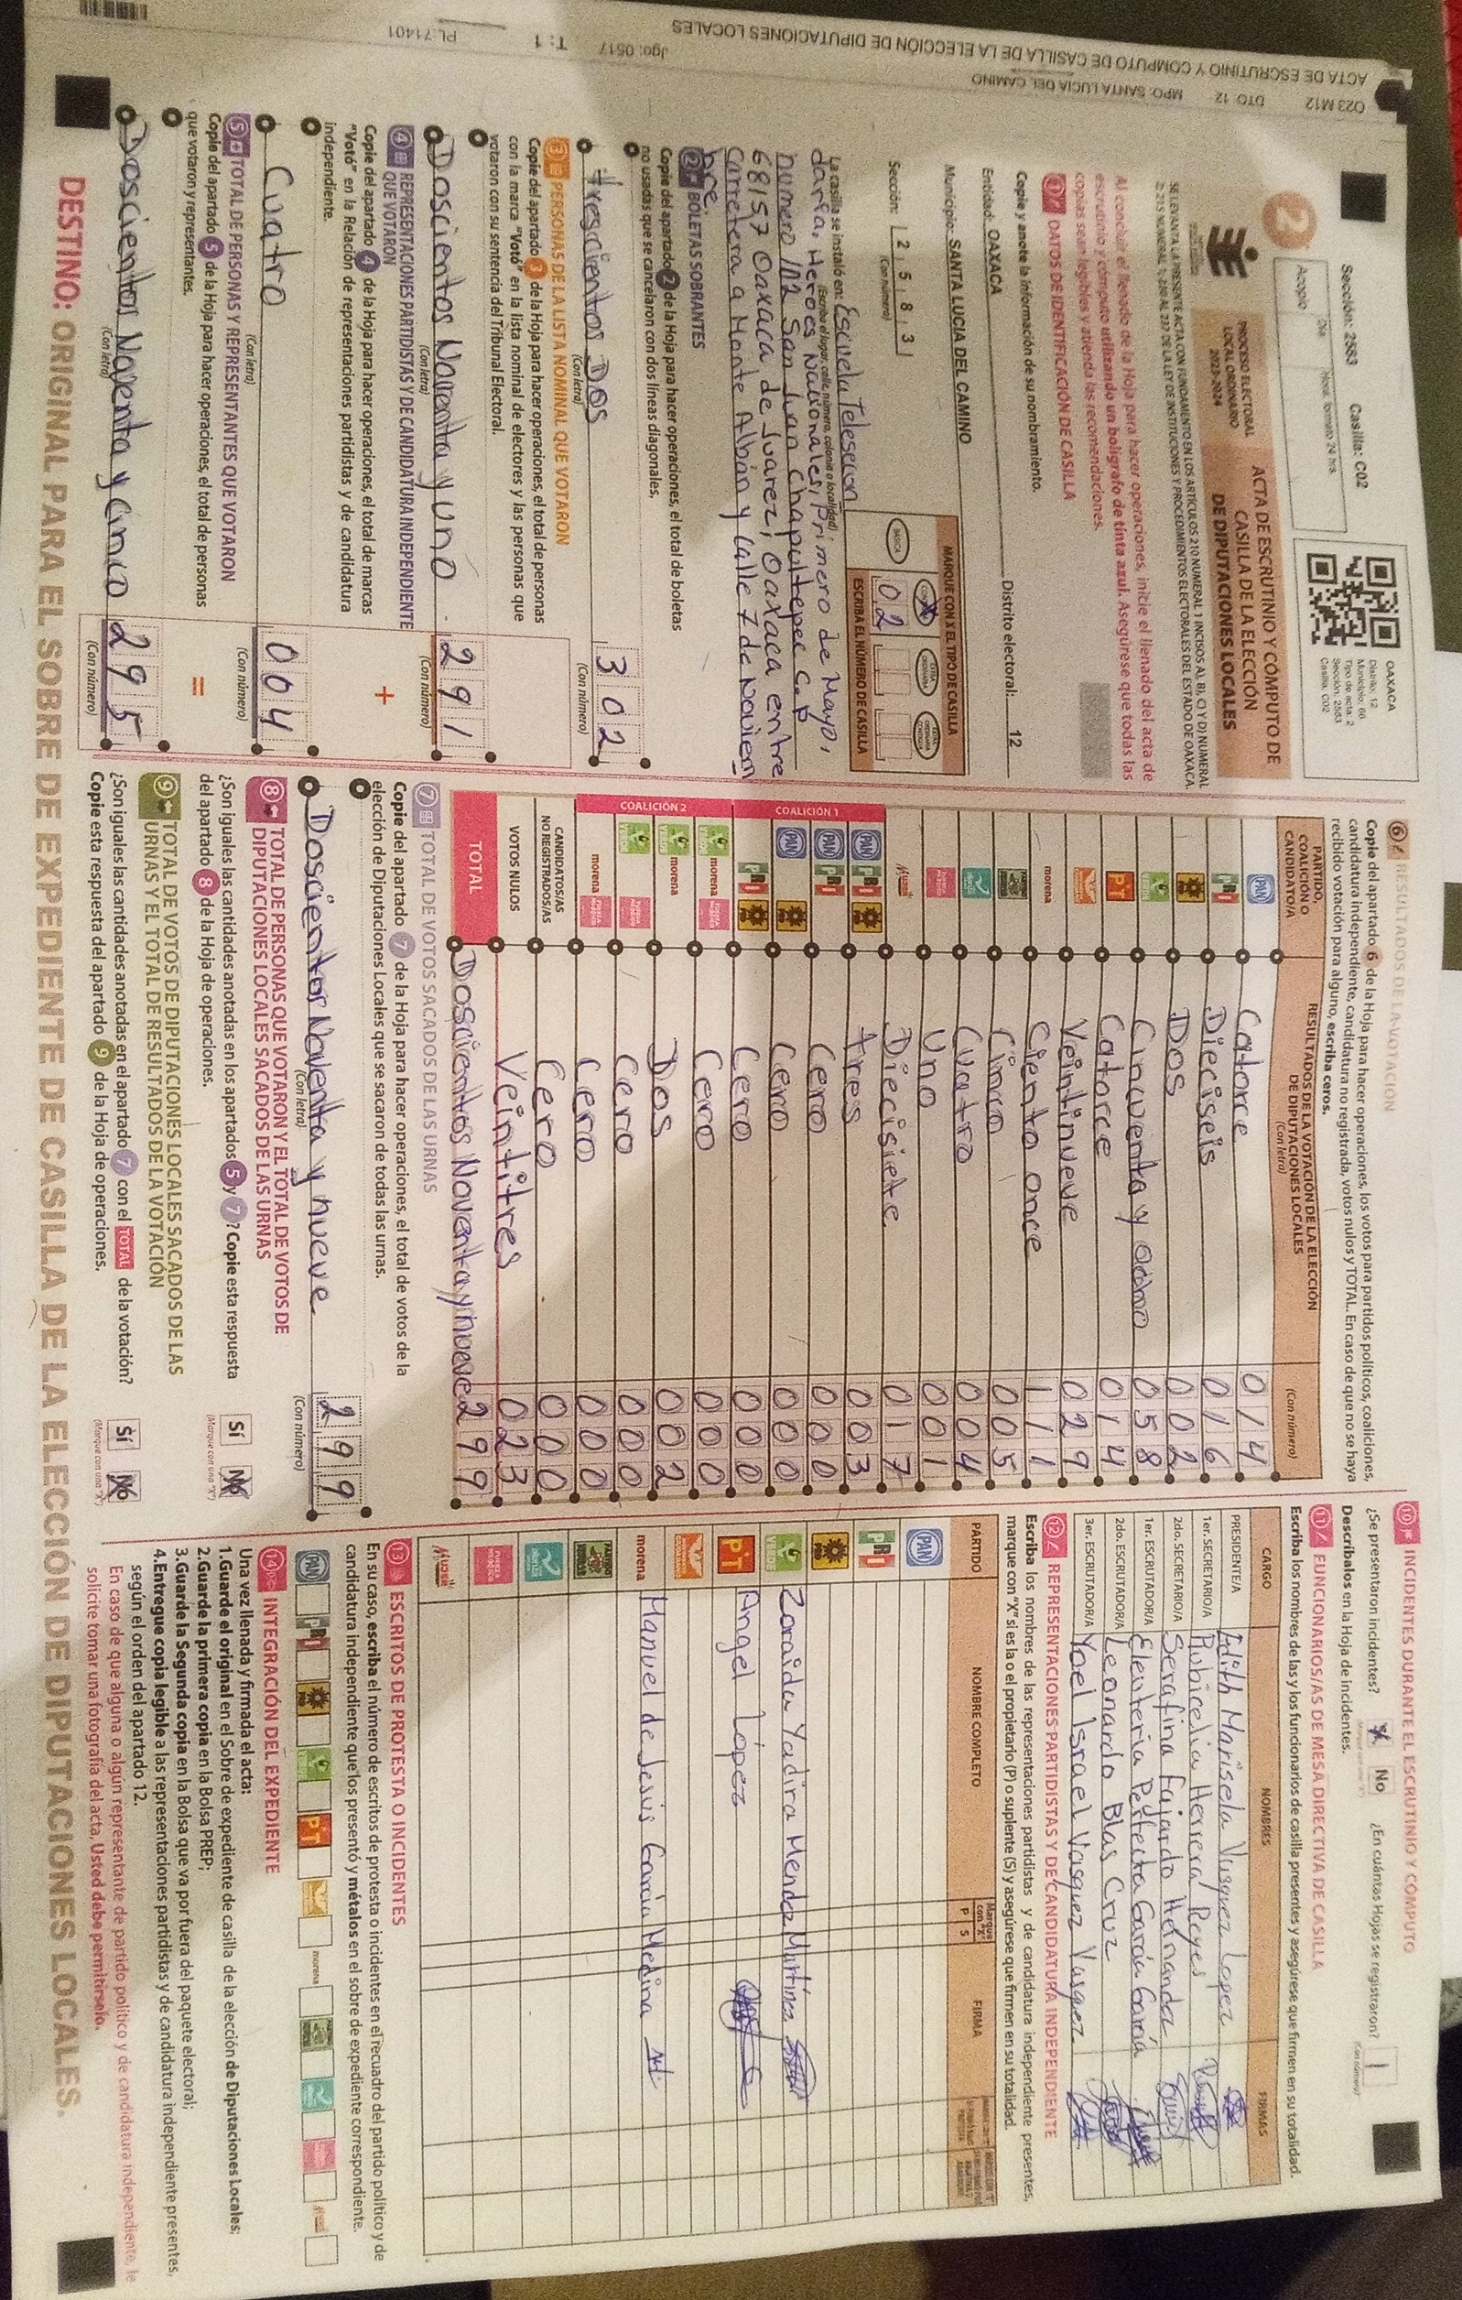 Sección: 2583 Casilla: C02
Acopio
Día
Hora, formato 24 hrs.
OAXACA
Distrito: 12
Municipio: 66
Tipo de acta: 2
Sección: 2583
Casilla: C02
2
PROCESO ELECTORAL
LOCAL ORDINARIO
2023-2024
ACTA DE ESCRUTINIO Y CÓMPUTO DE
CASILLA DE LA ELECCIÓN
DE DIPUTACIONES LOCALES
SE LEVANTA LA PRESENTE ACTA CON FUNDAMENTO EN LOS ARTÍCULOS 210 NUMERAL 1 INCISOS A), B), C) Y D) NUMERAL
Al concluir el llenado de la Hoja para hacer operaciones, inicie el llenado del acta de
escrutinio y cómputo utilizando un bolígrafo de tinta azul. Asegúrese que todas las
copias sean legibles y atienda las recomendaciones.
1 DATOS DE IDENTIFICACIÓN DE CASILLA
Copie y anote la información de su nombramiento.
Entidad: OAXACA Distrito electoral: 12
Municipio: SANTA LUCIA DEL CAMINO
Sección: 2 5 8 3
(Con número)
MARQUE CON X EL TIPO DE CASILLA
ESCRIBA EL NÚMERO DE CASILLA
0 2
La casilla se instaló en: Escuela Telesecun
(Escriba el lugar, calle, número, colonia o localidad)
daria, Heroes Nacionales, Primero de Mayo,
numero 102 San Juan Chapultepec C.P
68157 Oaxaca de Juarez, Oaxaca entre
carretera a Monte Albán y calle 7 de Noviem
bre.
2 BOLETAS SOBRANTES
Copie del apartado 2 de la Hoja para hacer operaciones, el total de boletas
no usadas que se cancelaron con dos líneas diagonales.
trescientos Dos 302
(Con letra) (Con número)
3 PERSONAS DE LA LISTA NOMINAL QUE VOTARON
Copie del apartado 3 de la Hoja para hacer operaciones, el total de personas
con la marca "Votó" en la lista nominal de electores y las personas que
votaron con su sentencia del Tribunal Electoral.
Doscientos Noventa y uno 291
(Con letra) (Con número)
4 REPRESENTACIONES PARTIDISTAS Y DE CANDIDATURA INDEPENDIENTE
QUE VOTARON
Copie del apartado 4 de la Hoja para hacer operaciones, el total de marcas
"Votó" en la Relación de representaciones partidistas y de candidatura
independiente.
+
Cuatro 004
(Con letra) (Con número)
5 TOTAL DE PERSONAS Y REPRESENTANTES QUE VOTARON
Copie del apartado 5 de la Hoja para hacer operaciones, el total de personas
que votaron y representantes.
=
Doscientos Noventa y cinco 295
(Con letra) (Con número)
6 RESULTADOS DE LA VOTACIÓN
Copie del apartado 6 de la Hoja para hacer operaciones, los votos para partidos políticos, coaliciones,
candidatura independiente, candidatura no registrada, votos nulos y TOTAL. En caso de que no se haya
recibido votación para alguno, escriba ceros.
PARTIDO,
COALICIÓN O
CANDIDATO/A
RESULTADOS DE LA VOTACIÓN DE LA ELECCIÓN
DE DIPUTACIONES LOCALES
(Con letra) (Con número)
PAN Catorce 014
PRI Dieciseis 016
PRD Dos 002
VERDE Cincuenta y ocho 058
PT Catorce 014
Veintinueve 029
morena Ciento once 111
Cinco 005
Cuatro 004
Uno 001
Diecisiete 017
COALICIÓN 1
PAN PRI PRD tres 003
PAN PRI Cero 000
PAN PRD Cero 000
PRI PRD Cero 000
COALICIÓN 2
VERDE morena Cero 000
VERDE morena Dos 002
VERDE Cero 000
morena Cero 000
CANDIDATOS/AS
NO REGISTRADOS/AS Cero 000
VOTOS NULOS Veintitres 023
TOTAL Doscientos Noventa y nueve 299
7 TOTAL DE VOTOS SACADOS DE LAS URNAS
Copie del apartado 7 de la Hoja para hacer operaciones, el total de votos de la
elección de Diputaciones Locales que se sacaron de todas las urnas.
Doscientos Noventa y nueve 299
(Con letra) (Con número)
8 TOTAL DE PERSONAS QUE VOTARON Y EL TOTAL DE VOTOS DE
DIPUTACIONES LOCALES SACADOS DE LAS URNAS
¿Son iguales las cantidades anotadas en los apartados 5 y 7? Copie esta respuesta
del apartado 8 de la Hoja de operaciones.
Sí No
(Marque con una "X")
9 TOTAL DE VOTOS DE DIPUTACIONES LOCALES SACADOS DE LAS
URNAS Y EL TOTAL DE RESULTADOS DE LA VOTACIÓN
¿Son iguales las cantidades anotadas en el apartado 7 con el TOTAL de la votación?
Copie esta respuesta del apartado 9 de la Hoja de operaciones.
Sí No
(Marque con una "X")
10 INCIDENTES DURANTE EL ESCRUTINIO Y CÓMPUTO
¿Se presentaron incidentes? X No ¿En cuántas Hojas se registraron? 1
Descríbalos en la Hoja de incidentes.
11 FUNCIONARIOS/AS DE MESA DIRECTIVA DE CASILLA
Escriba los nombres de las y los funcionarios de casilla presentes y asegúrese que firmen en su totalidad.
CARGO NOMBRES FIRMAS
PRESIDENTE/A Edith Marisela Vasquez Lopez
1er. SECRETARIO/A Rubicelia Herrera Reyes
2do. SECRETARIO/A Serafina Fajardo Hernandez
1er. ESCRUTADOR/A Eleuteria Perfecta García García
2do. ESCRUTADOR/A Leonardo Blas Cruz
3er. ESCRUTADOR/A Yoel Israel Vasquez Vasquez
12 REPRESENTACIONES PARTIDISTAS Y DE CANDIDATURA INDEPENDIENTE
Escriba los nombres de las representaciones partidistas y de candidatura independiente presentes,
marque con "X" si es la o el propietario (P) o suplente (S) y asegúrese que firmen en su totalidad.
PARTIDO NOMBRE COMPLETO Marque con "X" P S FIRMA
PAN
PRI
PRD
VERDE Zoraida Yadira Mendez Martinez
PT Angel López
morena Manuel de Jesús García Medina
13 ESCRITOS DE PROTESTA O INCIDENTES
En su caso, escriba el número de escritos de protesta o incidentes en el recuadro del partido político y de
candidatura independiente que los presentó y métalos en el sobre de expediente correspondiente.
PAN PRI PRD VERDE PT morena
14 INTEGRACIÓN DEL EXPEDIENTE
Una vez llenada y firmada el acta:
1.Guarde el original en el Sobre de expediente de casilla de la elección de Diputaciones Locales;
2.Guarde la primera copia en la Bolsa PREP;
3.Guarde la Segunda copia en la Bolsa que va por fuera del paquete electoral;
4.Entregue copia legible a las representaciones partidistas y de candidatura independiente presentes,
según el orden del apartado 12.
En caso de que alguna o algún representante de partido político y de candidatura independiente, le
solicite tomar una fotografía del acta, Usted debe permitírselo.
DESTINO: ORIGINAL PARA EL SOBRE DE EXPEDIENTE DE CASILLA DE LA ELECCIÓN DE DIPUTACIONES LOCALES.
023 M12 DTO: 12 MPO: SANTA LUCIA DEL CAMINO
ACTA DE ESCRUTINIO Y COMPUTO DE CASILLA DE LA ELECCIÓN DE DIPUTACIONES LOCALES
Jgo: 0517 T: 1 PL 71401